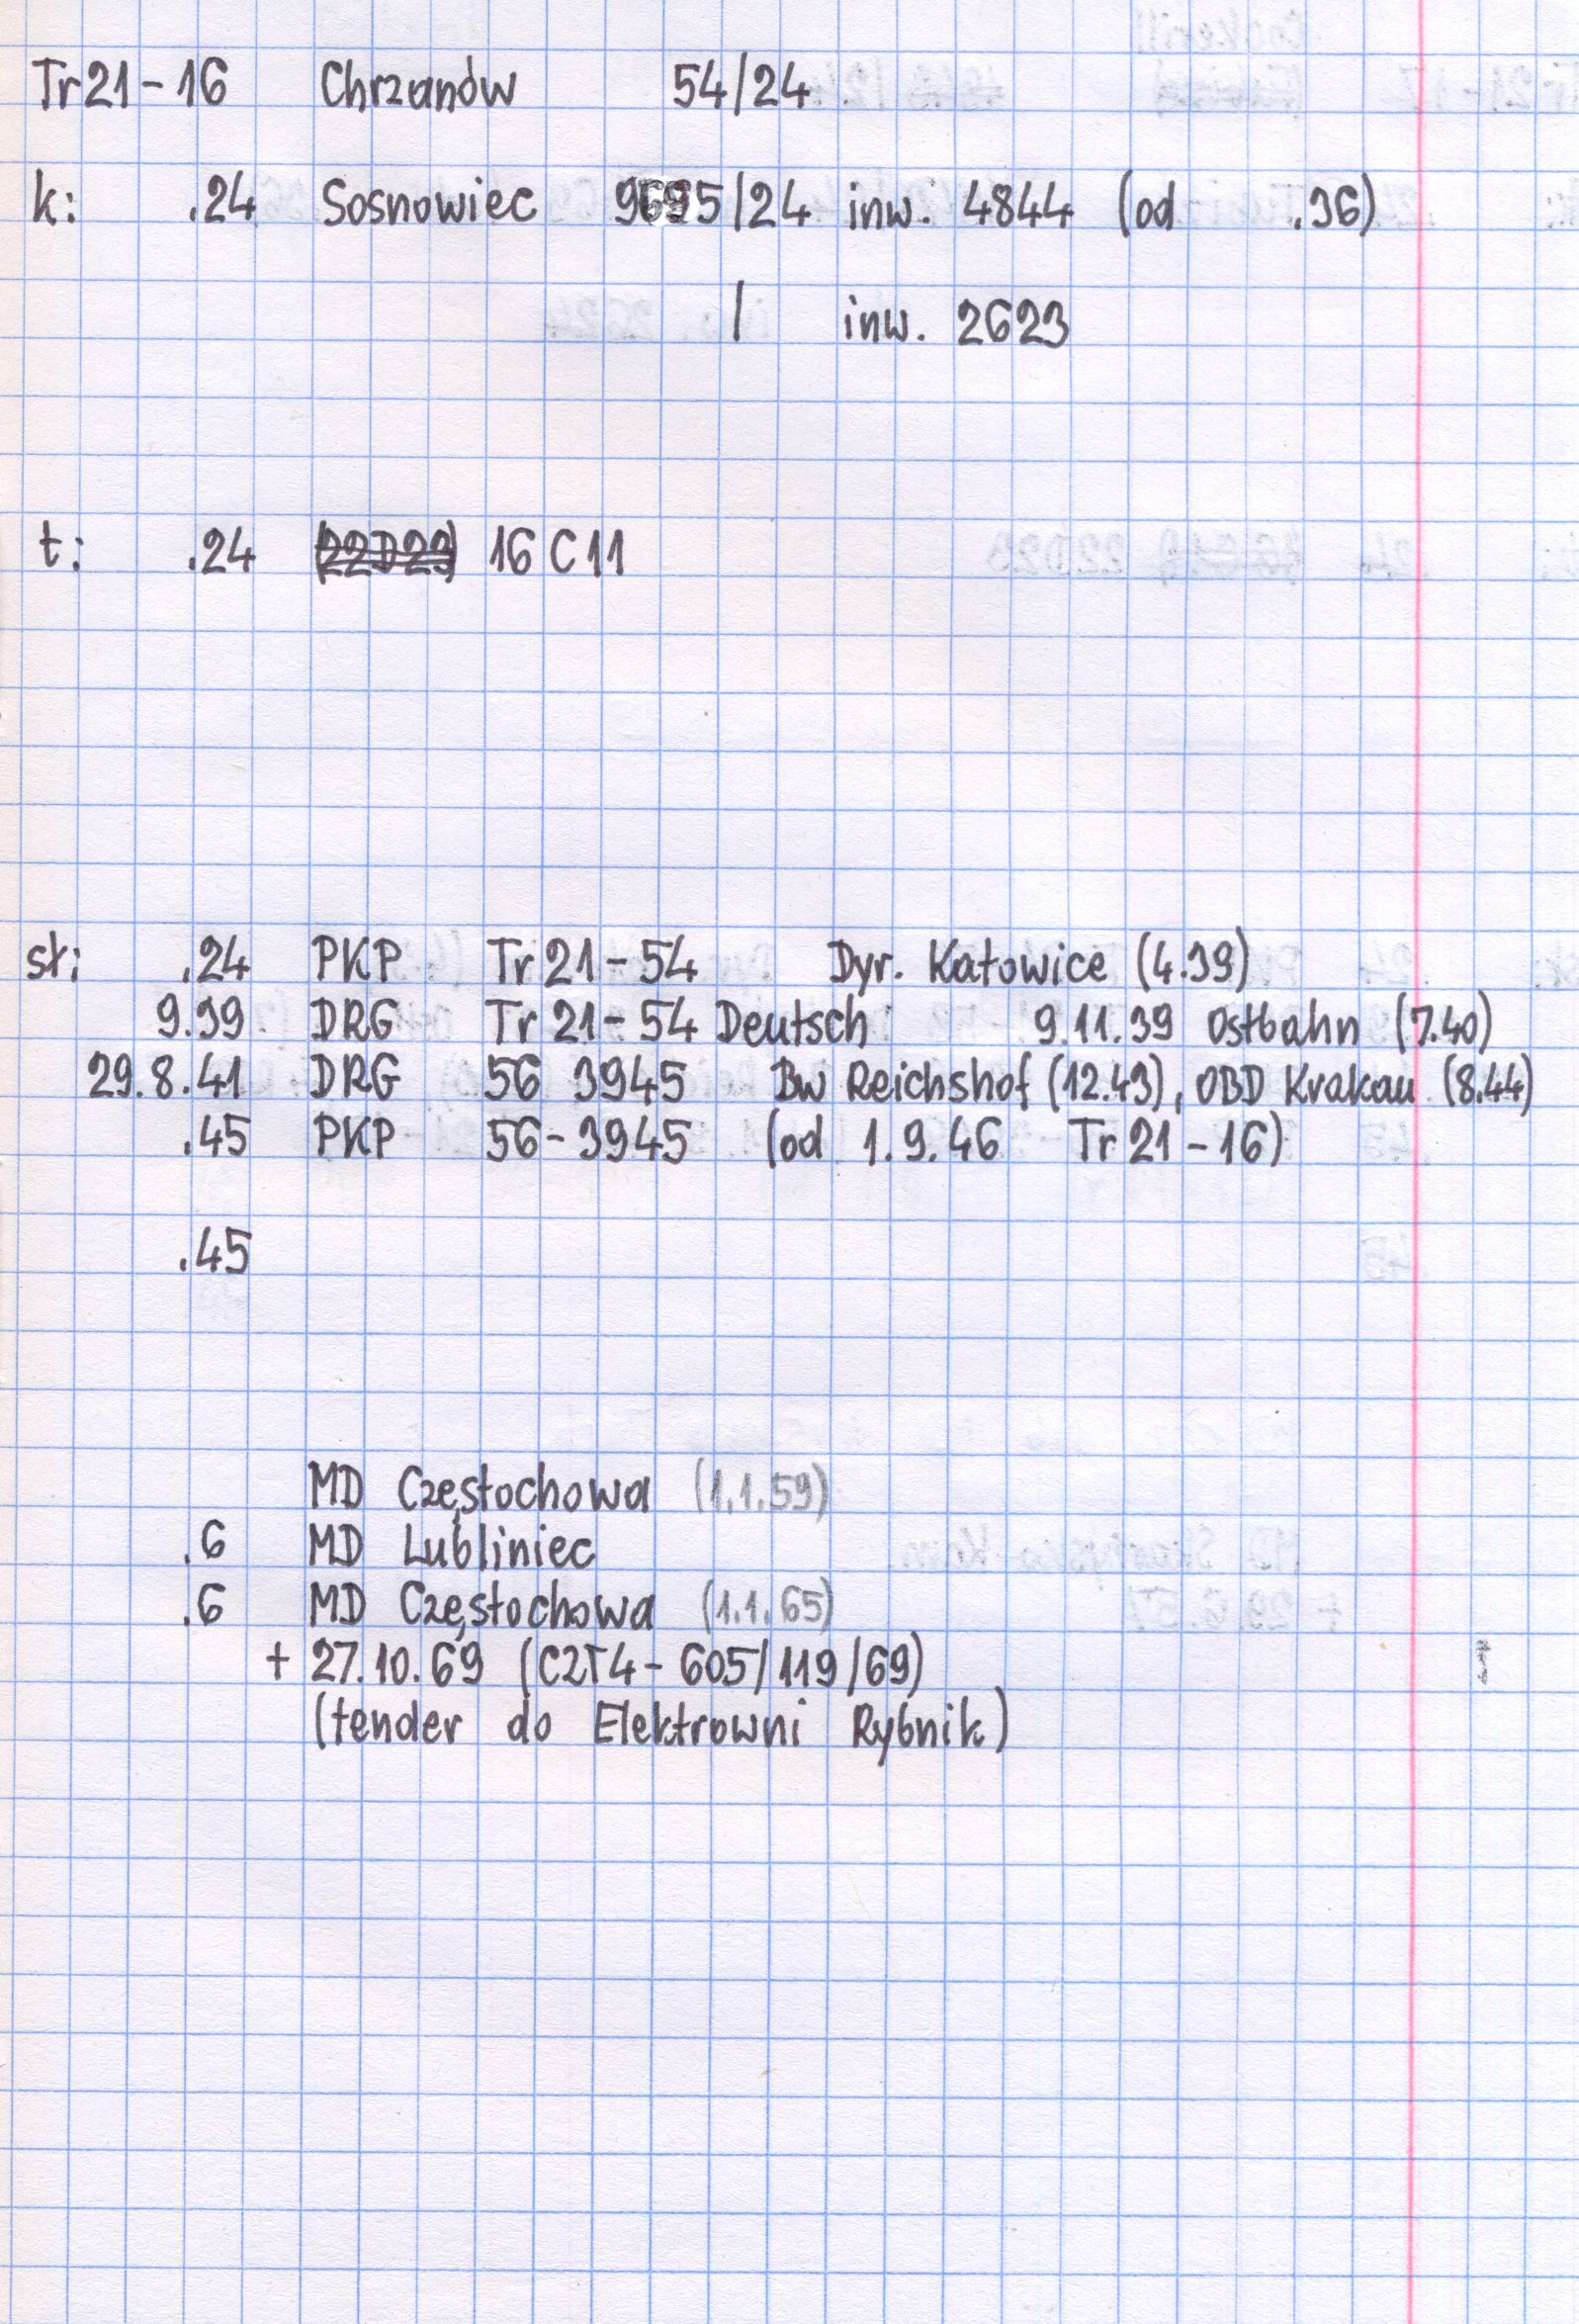 Tr21-16 Chrzanów 54/24
k: .24 Sosnowiec 9695/24 inw. 4844 (od .36)
/ inw. 2623
t: .24 (22D23) 16C11
sł: .24 PKP Tr21-54 Dyr. Katowice (4.39)
9.39 DRG Tr21-54 Deutsch 9.11.39 Ostbahn (7.40)
29.8.41 DRG 56 3945 Bw Reichshof (12.43), OBD Krakau (8.44)
.45 PKP 56-3945 (od 1.9.46 Tr21-16)
.45
MD Częstochowa (1.1.59)
.6 MD Lubliniec
.6 MD Częstochowa (1.1.65)
+ 27.10.69 (C2T4-605/119/69)
(tender do Elektrowni Rybnik)